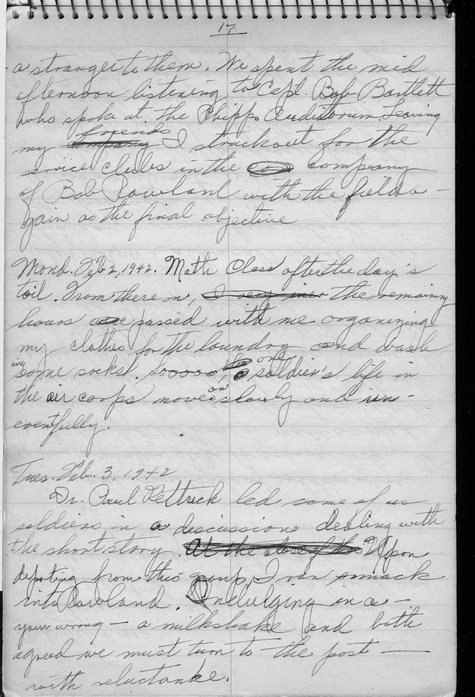 17
a stranger to them. We spent the mid
afternoon listening to Capt. Bob Bartlett
who spoke at the Phipps Auditorum. Leaving
my company friends I struck out for the
service clubs in the company
of Bob Rowland with the field a-
gain as the final objective
Mond. Feb 2, 1942. Math Class after the day's
toil. From there on, the remaining
hours passed with me organizing
my clothes for the laundry and wash
ing some socks. Sooooo a soldier's life in
the air corps moves on slowly and un-
eventfully.
Tues. Feb. 3, 1942
Dr. Paul led some of us
soldiers in a discussion dealing with
the short story. At the close of the Upon
departing from this group, I ran smack
into Rowland. Indulging in a —
your wrong — a milkshake and both
agreed we must turn to the post —
with reluctance.